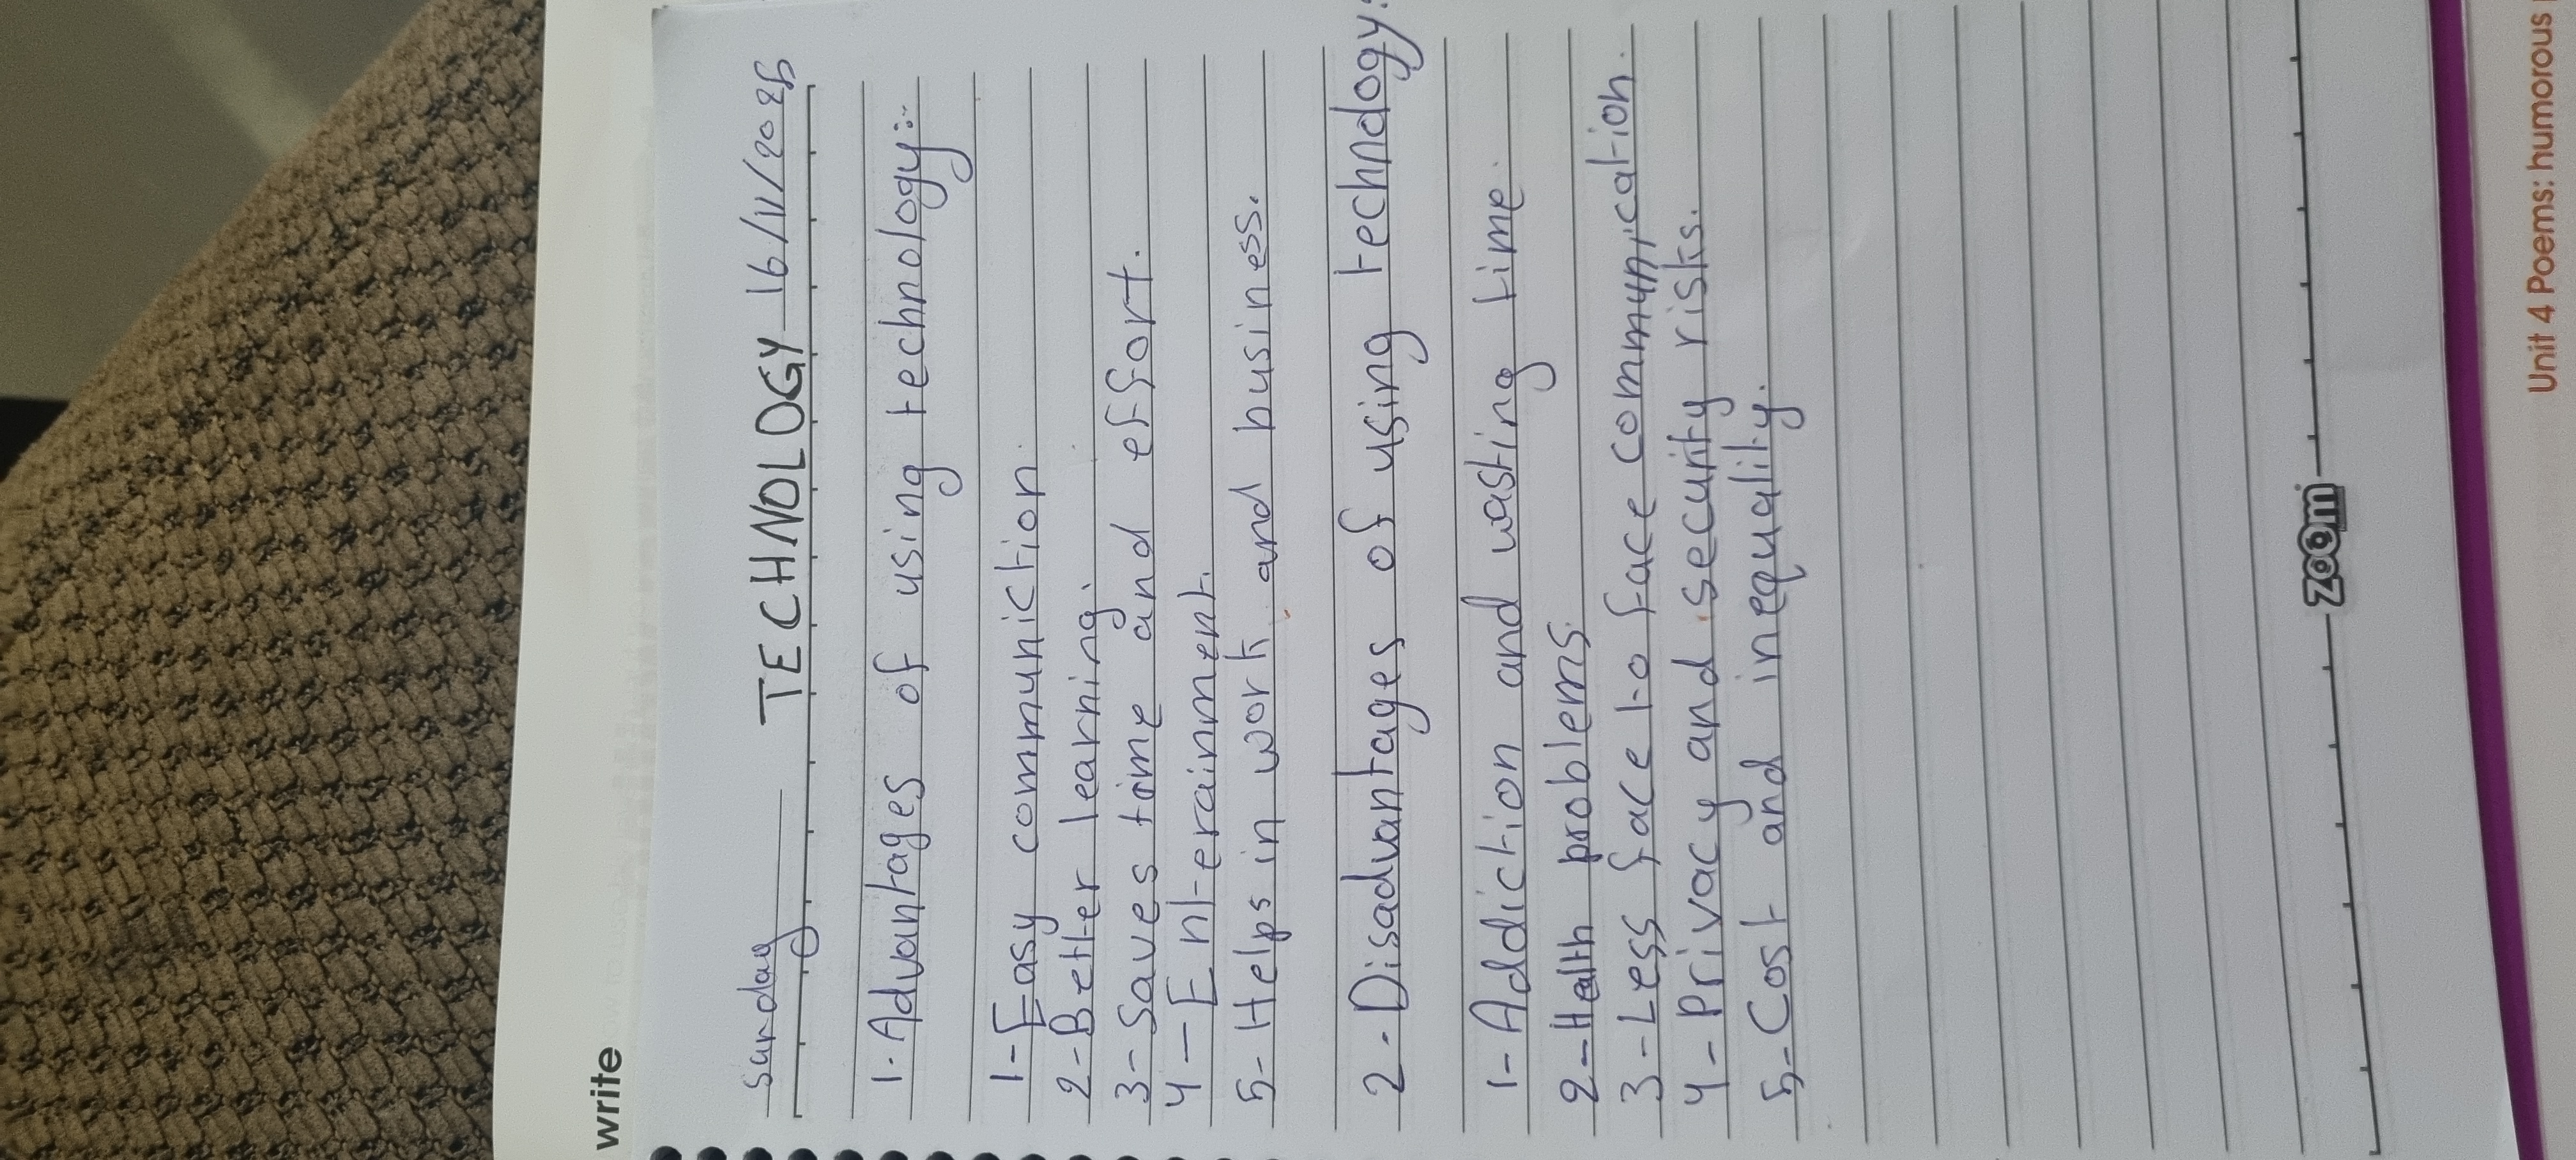 write
Sunday TECHNOLOGY 16/11/2025
1. Advantages of using technology:-
1- Easy communiction.
2- Better learning.
3- Saves time and effort.
4- Enterainment.
5- Helps in work and business.
2.- Disadvantages of using technology:
1- Addiction and wasting time.
2- Health problems.
3- Less face to face communication.
4- Privacy and security risks.
5- Cost and inequality.
zoom
Unit 4 Poems: humorous